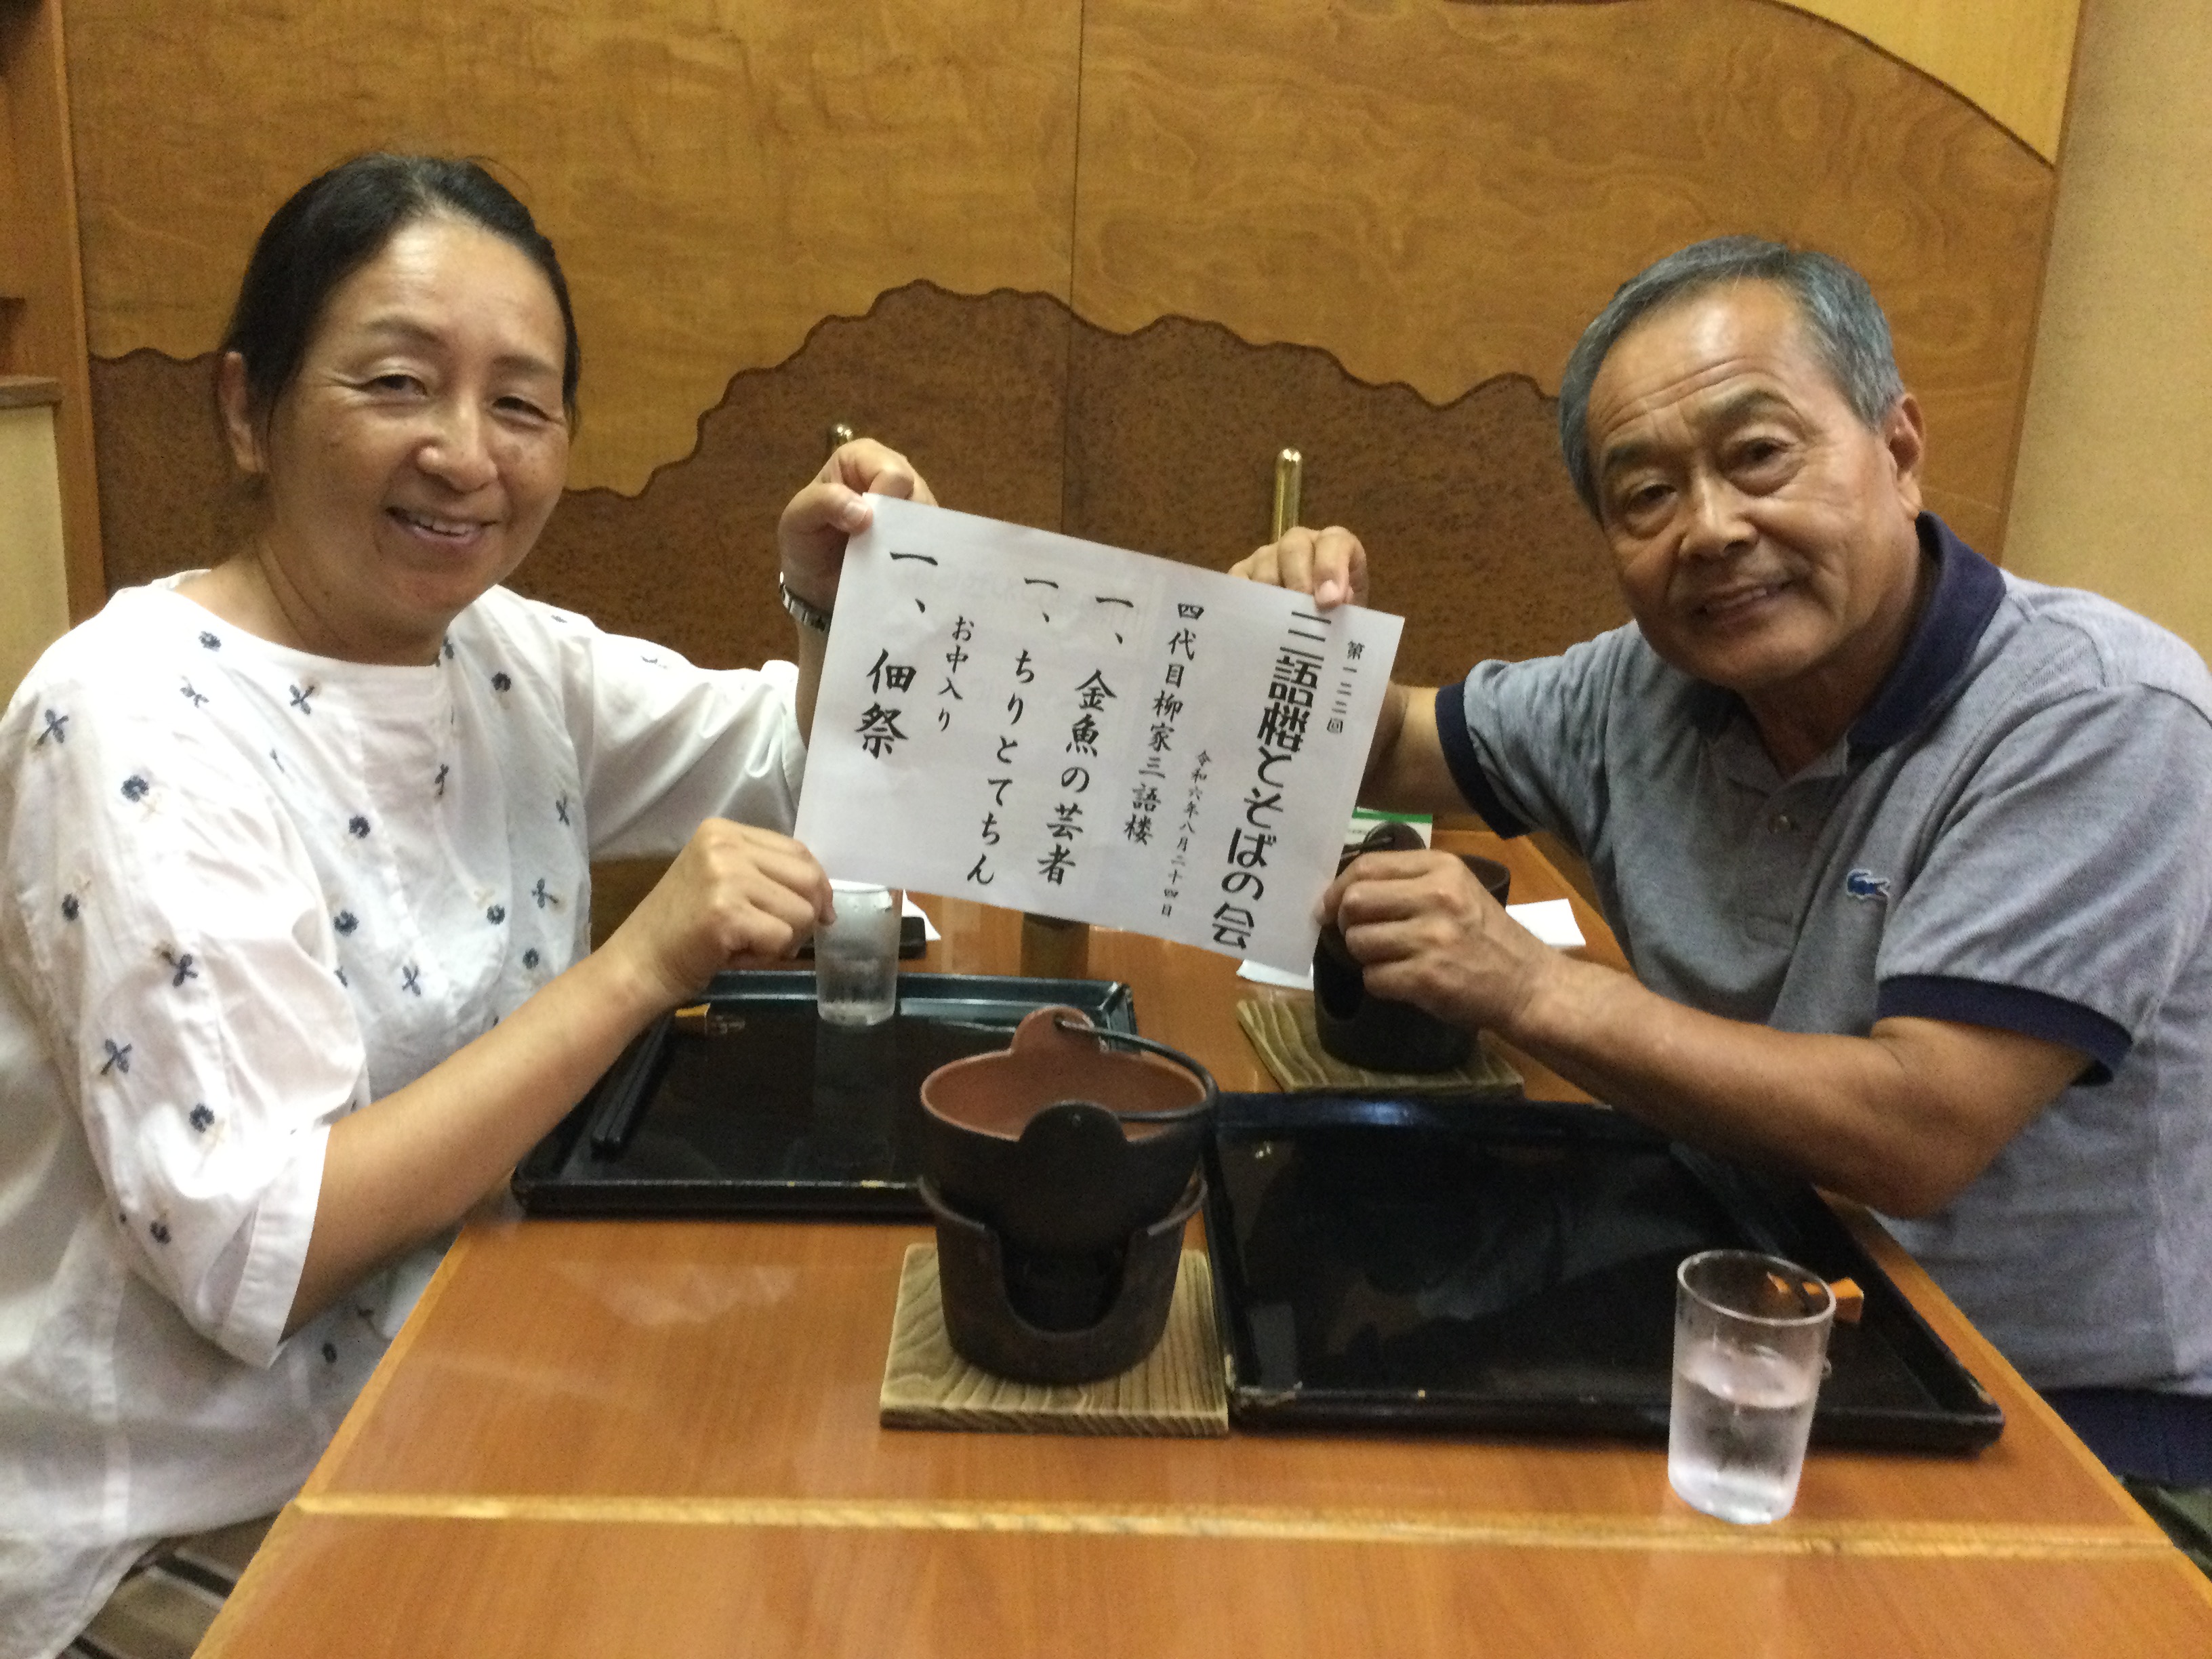 第一二二回
三語楼とそばの会
令和六年八月二十四日
四代目柳家三語楼
一、金魚の芸者
一、ちりとてちん
お中入り
一、佃祭